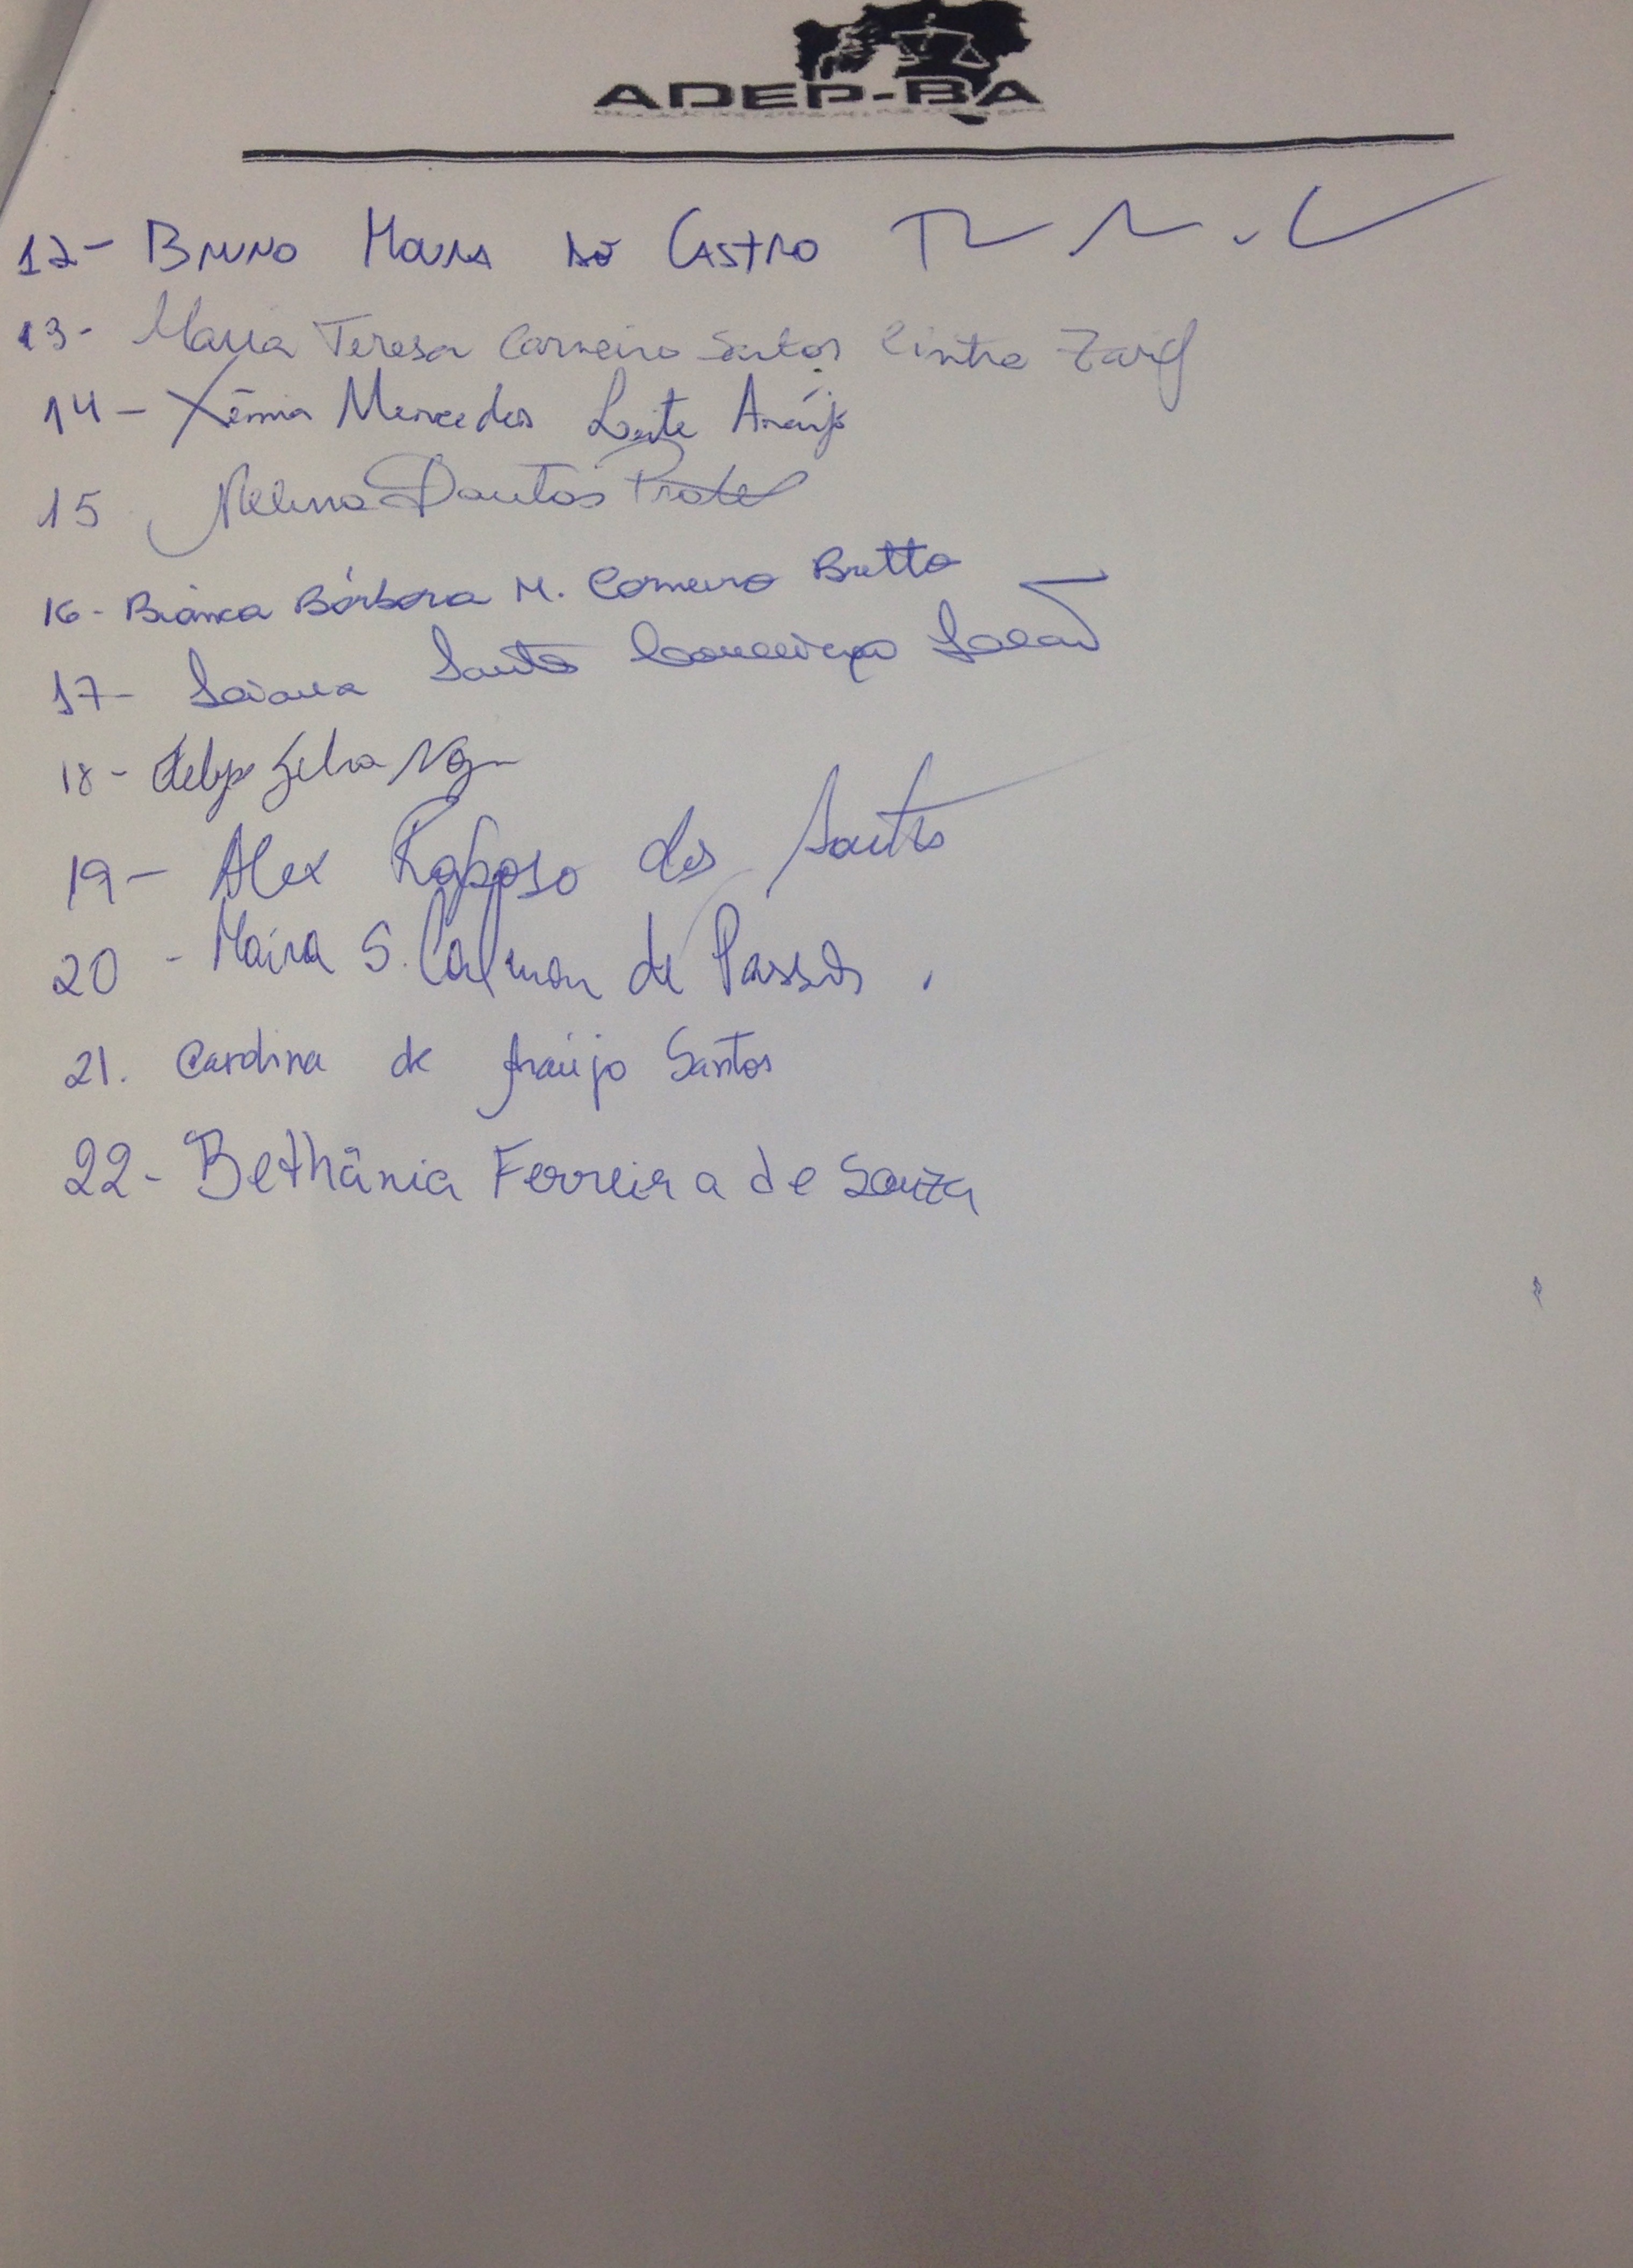 ADEP-BA
12- BRUNO MOURA DE CASTRO
13- Maria Teresa Carneiro Santos Cintra Zarif
14- Xênia Mercedes Leite Araújo
15 Melina Dantas Prates
16- Bianca Bárbara M. Carneiro Britto
17- Laiana Santos Conceição
18- Felipe Silva
19- Alex Raposo dos Santos
20- Maíra S. Calmon de Passos.
21. Carolina de Araújo Santos
22- Bethânia Ferreira de Souza